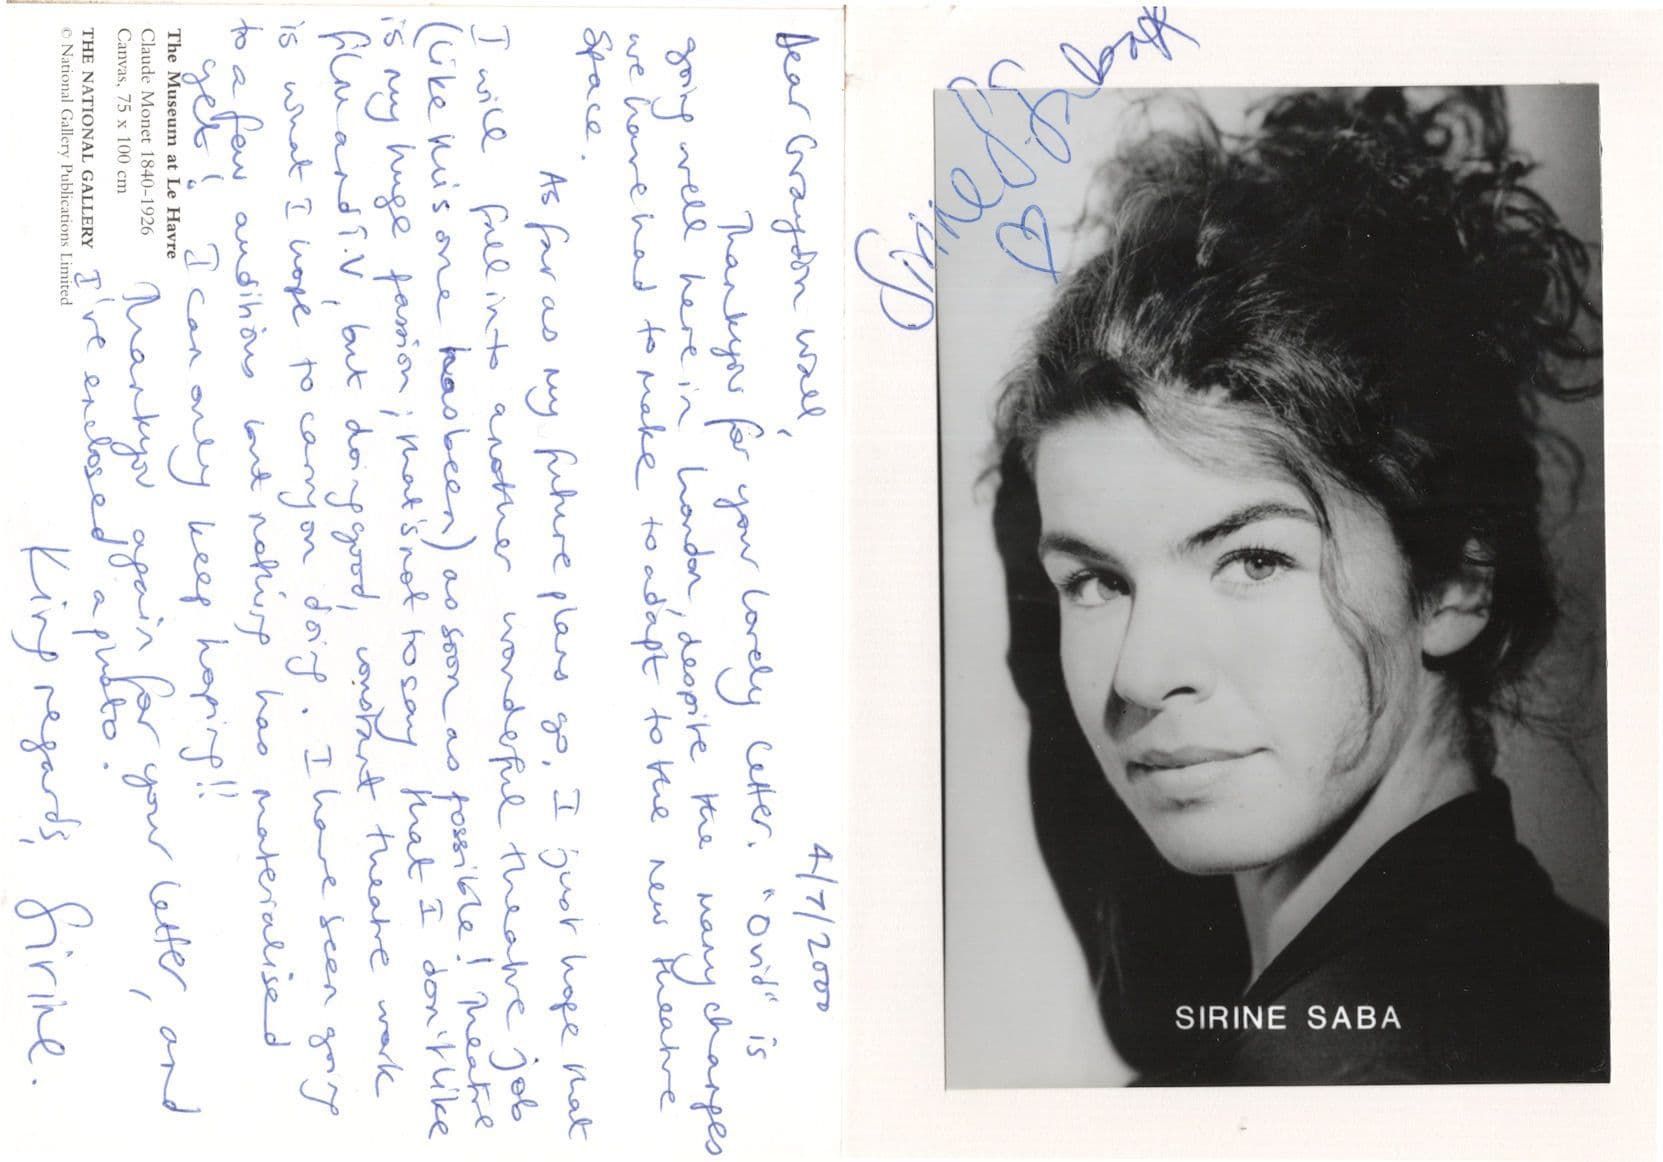 4/7/2000
Dear Graydon Wall,
Thankyou for your lovely letter. "Ovid" is
going well here in London, despite the many changes
we have had to make to adapt to the new theatre
space.
As far as my future plans go, I just hope that
I will fall into another wonderful theatre job
(like this one has been) as soon as possible! Theatre
is my huge passion; that's not to say that I don't like
film and T.V, but doing good, constant theatre work
is what I hope to carry on doing. I have seen going
to a few auditions but nothing has materialised
yet! I can only keep hoping!!
Thankyou again for your letter, and
I've enclosed a photo.
Kind regards, Sirine.
The Museum at Le Havre
Claude Monet 1840-1926
Canvas, 75 x 100 cm
THE NATIONAL GALLERY
© National Gallery Publications Limited
Sirine Saba
SIRINE SABA